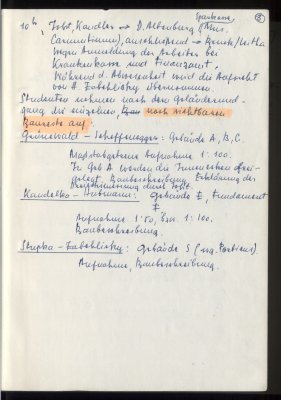 Sparkasse
10h Jobst, Kandler → D. Altenburg (Mus.
Carnuntinum), anschließend → Bruck/Leitha
wegen Anmeldung der Arbeiter bei
Krankenkassa und Finanzamt.
Während d. Abwesenheit wird die Aufsicht
von A. Zabehlicky übernommen.
Studenten nehmen nach dem Geländerund-
gang die einzelnen, noch sichtbaren
Baureste auf.
Grünewald - Scheffenegger: Gebäude A, B, C.
Maßstabgetreue Aufnahme 1:100.
In Geb A werden die Innenecken frei-
gelegt, Baubeschreibung, Erklärung der
durch Jobst.
Kandelka - Fuhrmann: Gebäude E, Fundament
F
Aufnahme 1:50, bzw. 1:100.
Baubeschreibung.
Stupka - Zabehlicky: Gebäude S (sog. Porticus)
Aufnahme Baubeschreibung.